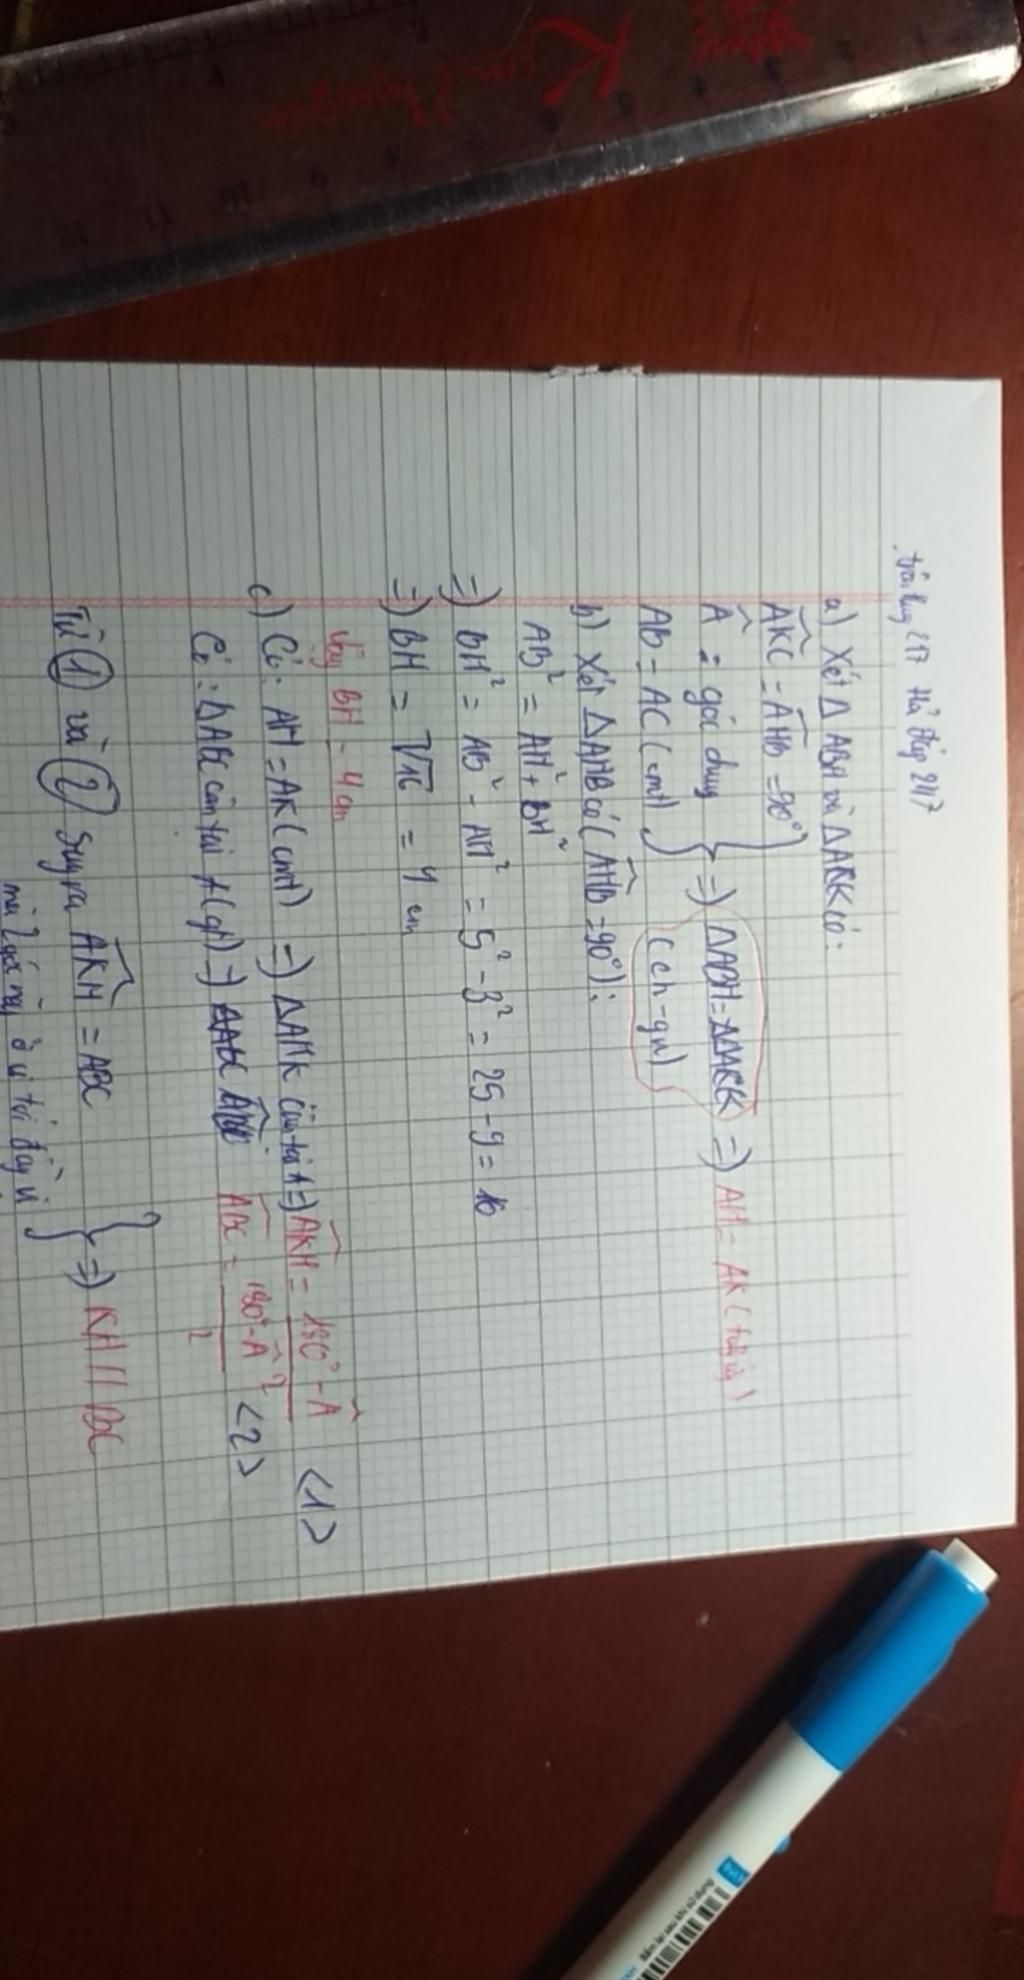 217 Hả 2417
a) Xét Δ ABH và Δ ACK có:
AKC = AHB = 90°
A : góc chung
AB = AC (cmt)
=) ΔABH = ΔACK =) AH = AK
(ch-gn)
b) Xét Δ AHB có (AHB = 90°):
AB² = AH² + BH²
=) BH² = AB² - AH² = 5² - 3² = 25 - 9 = 16
=) BH = √16 = 4 cm
Vậy BH = 4 cm
c) Có: AH = AK (cmt) =) ΔAHK cân tại A =) AKH = 180° - A / 2 <1>
Có: ΔABC cân tại A (gt) =) ABC = 180° - A / 2 <2>
Từ (1) và (2) suy ra AKH = ABC
mà 2 góc này ở vị trí đồng vị
=) KH // BC
10
11
12